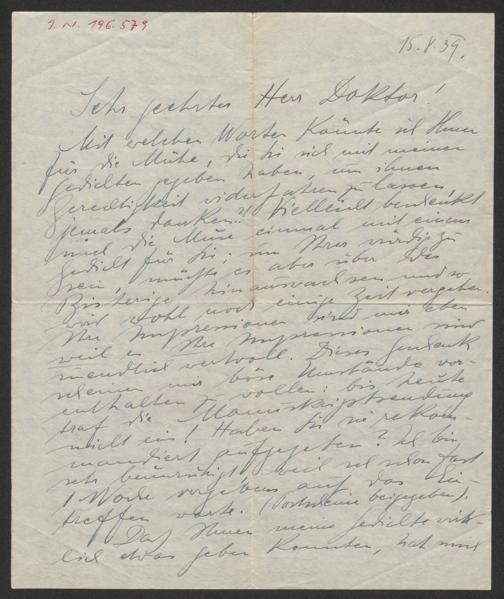 I.N. 196.579
15.V.39.
Sehr geehrter Herr Doktor!
Mit welchen Worten könnte ich Ihnen
für die Mühe, die Sie sich mit meinen
Gedichten gegeben haben, um ihnen
Gerechtigkeit widerfahren zu lassen,
jemals danken? Vielleicht beschenkt
mich die Muse einmal mit einem
Gedicht für Sie; um Ihrer würdig zu
sein, müsste es aber über das
Bisherige hinauswachsen und so
wird wohl noch einige Zeit vergehen.
Ihre Impressionen sind mir eben
weil es Ihre Impressionen sind
unendlich wertvoll. Dieses Geschenk
scheinen mir böse Umstände vor-
enthalten zu wollen: bis heute
traf die Manuskriptsendung
nicht ein! Haben Sie sie rekom-
mandiert aufgegeben? Ich bin
sehr beunruhigt weil ich schon fast
1 Woche vergebens auf das Ein-
treffen warte. (Portospesen beigegeben).
Daß Ihnen meine Gedichte wirk-
lich etwas geben konnten, hat mich